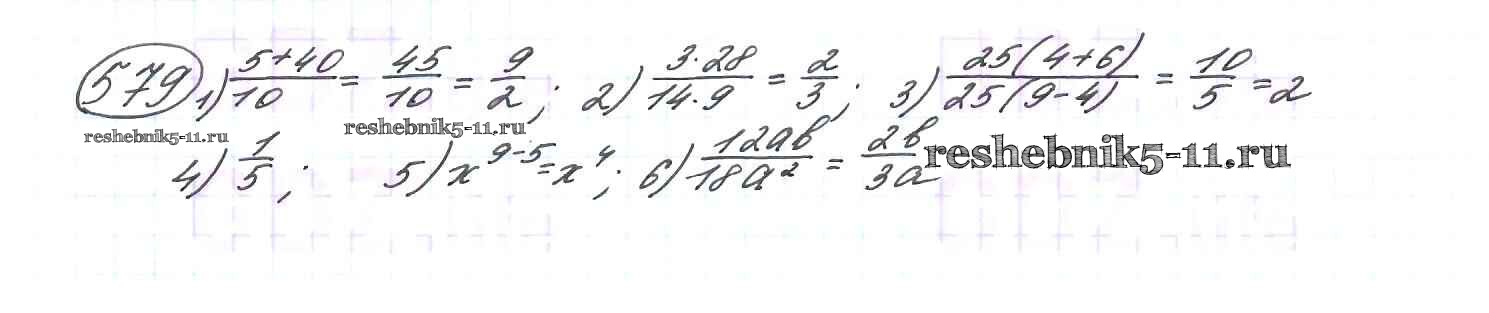 579 1) (5+40)/10 = 45/10 = 9/2; 2) (3·28)/(14·9) = 2/3; 3) (25(4+6))/(25(9-4)) = 10/5 = 2
reshebnik5-11.ru reshebnik5-11.ru
4) 1/5; 5) x^(9-5) = x^4; 6) (12ab)/(18a²) = 2b/3a reshebnik5-11.ru